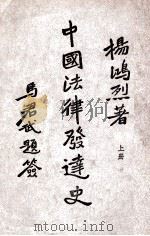 楊鴻烈著
中國法律發達史
上册
馬君武題簽
www.mtoou.info